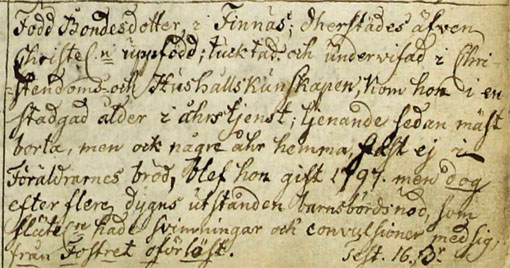 Född Bondesdotter, i Finnäs; dherstädes äfven
Christel:n uppfödd; tucktad och undervisad i Chri-
stendoms- och Hushållskunskapen, kom hon i en
stadgad ålder i åhrstjenst; tjenande sedan mäst
borta, men ock några åhr hemma, fast ej i
Föräldrarnes bröd, blef hon gift 1797. men dog
efter flere dygns utstånden barnsbördsnöd, som
slute:n hade svimningar och convulsioner med sig,
från Fostret oförlöst. Test. 16,